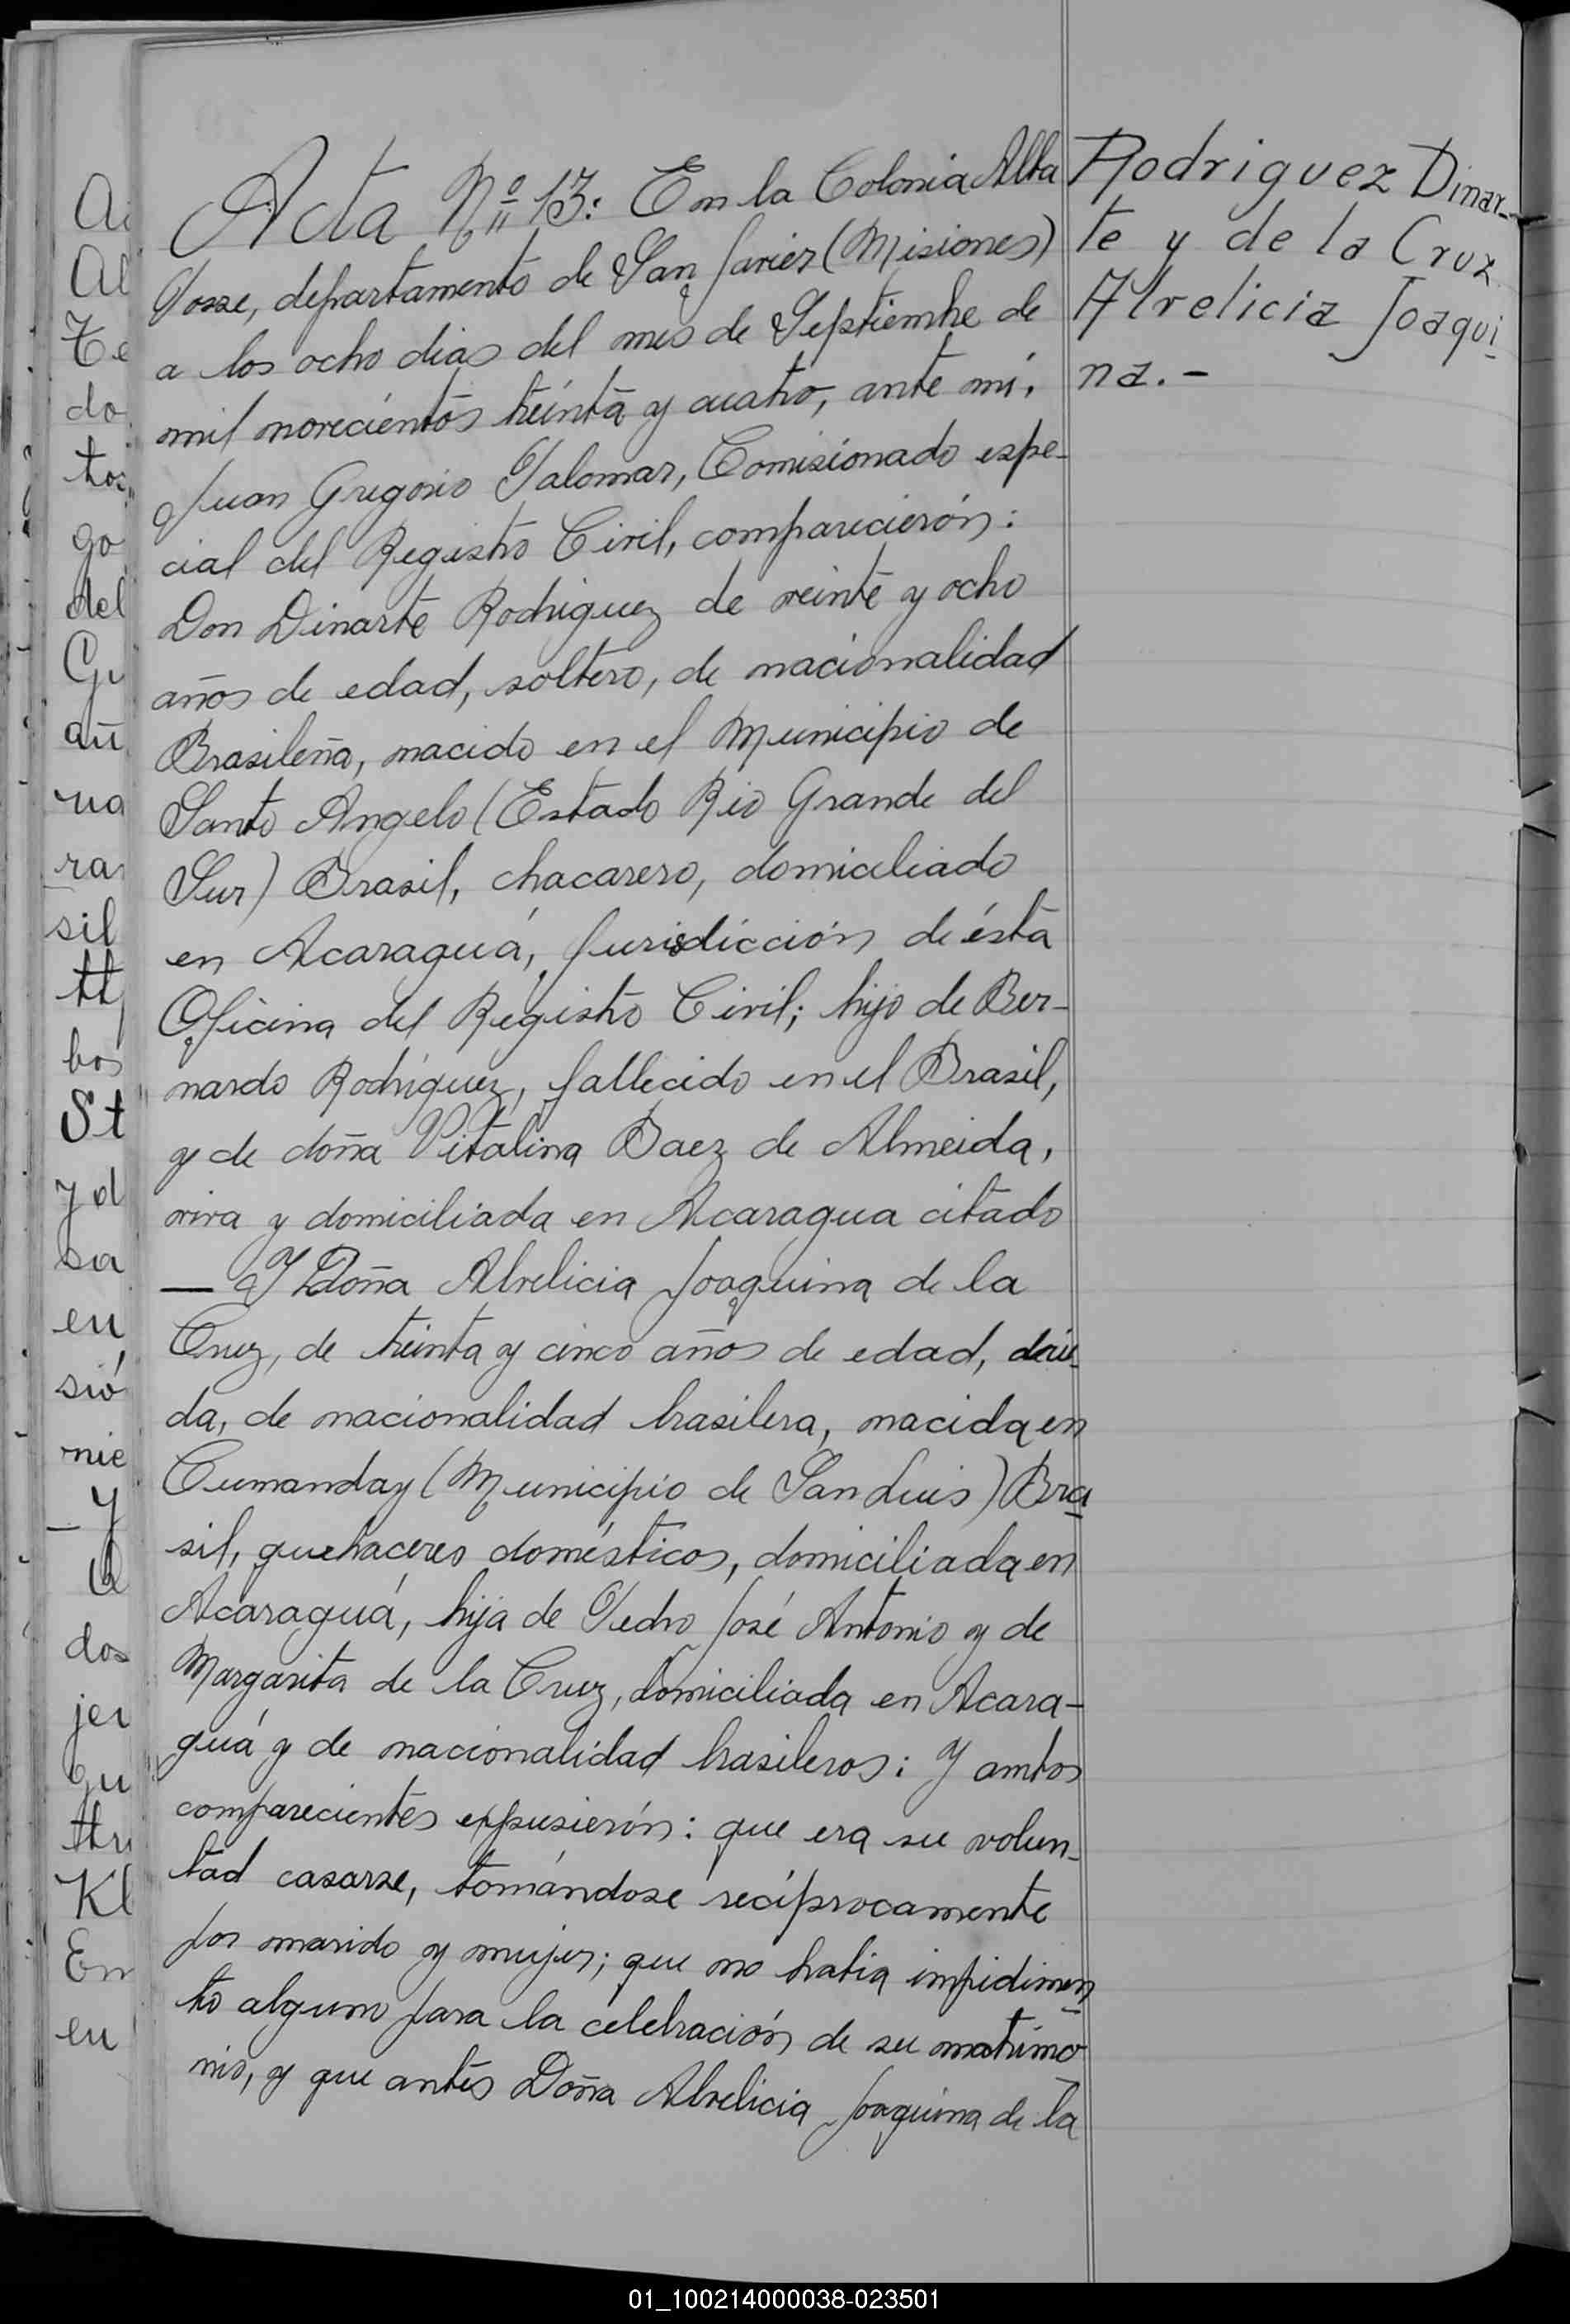 Acta Nº 13: En la Colonia Alba
Posse, departamento de San Javier (Misiones)
a los ocho dias del mes de Septiembre de
mil novecientos treinta y cuatro, ante mí,
Juan Gregorio Palomar, Comisionado espe-
cial del Registro Civil, comparecierón:
Don Dinarte Rodriguez de veinte y ocho
años de edad, soltero, de nacionalidad
Brasileña, nacido en el Municipio de
Santo Angelo (Estado Rio Grande del
Sur) Brasil, chacarero, domiciliado
en Acaraguá, Jurisdicción de ésta
Oficina del Registro Civil; hijo de Ber-
nardo Rodríguez, fallecido en el Brasil,
y de doña Vitalina Baez de Almeida,
viva y domiciliada en Acaragua citado
— Y Doña Alvelicia Joaquina de la
Cruz, de treinta y cinco años de edad,
da, de nacionalidad brasilera, nacida en
Cumanday (Municipio de San Luis) Bra
sil, quehaceres domésticos, domiciliada en
Acaraguá, hija de Pedro José Antonio y de
Margarita de la Cruz, domiciliada en Acara-
guá y de nacionalidad brasileros: Y ambos
comparecientes expusierón: que era su volun-
tad casarse, tomándose recíprocamente
por marido y mujer; que no habia impidimen
to alguno para la celebración de su matrimo
nio, y que antes Doña Alvelicia Joaquina de la
Rodriguez Dinar-
te y de la Cruz
Alvelicia Joaqui
na.-
Te
do
go
del
añ
ra
sil
bos
St
y d
sa
en
sió
nie
Y
dos
jer
gu
Kl
En
en
01_100214000038-023501